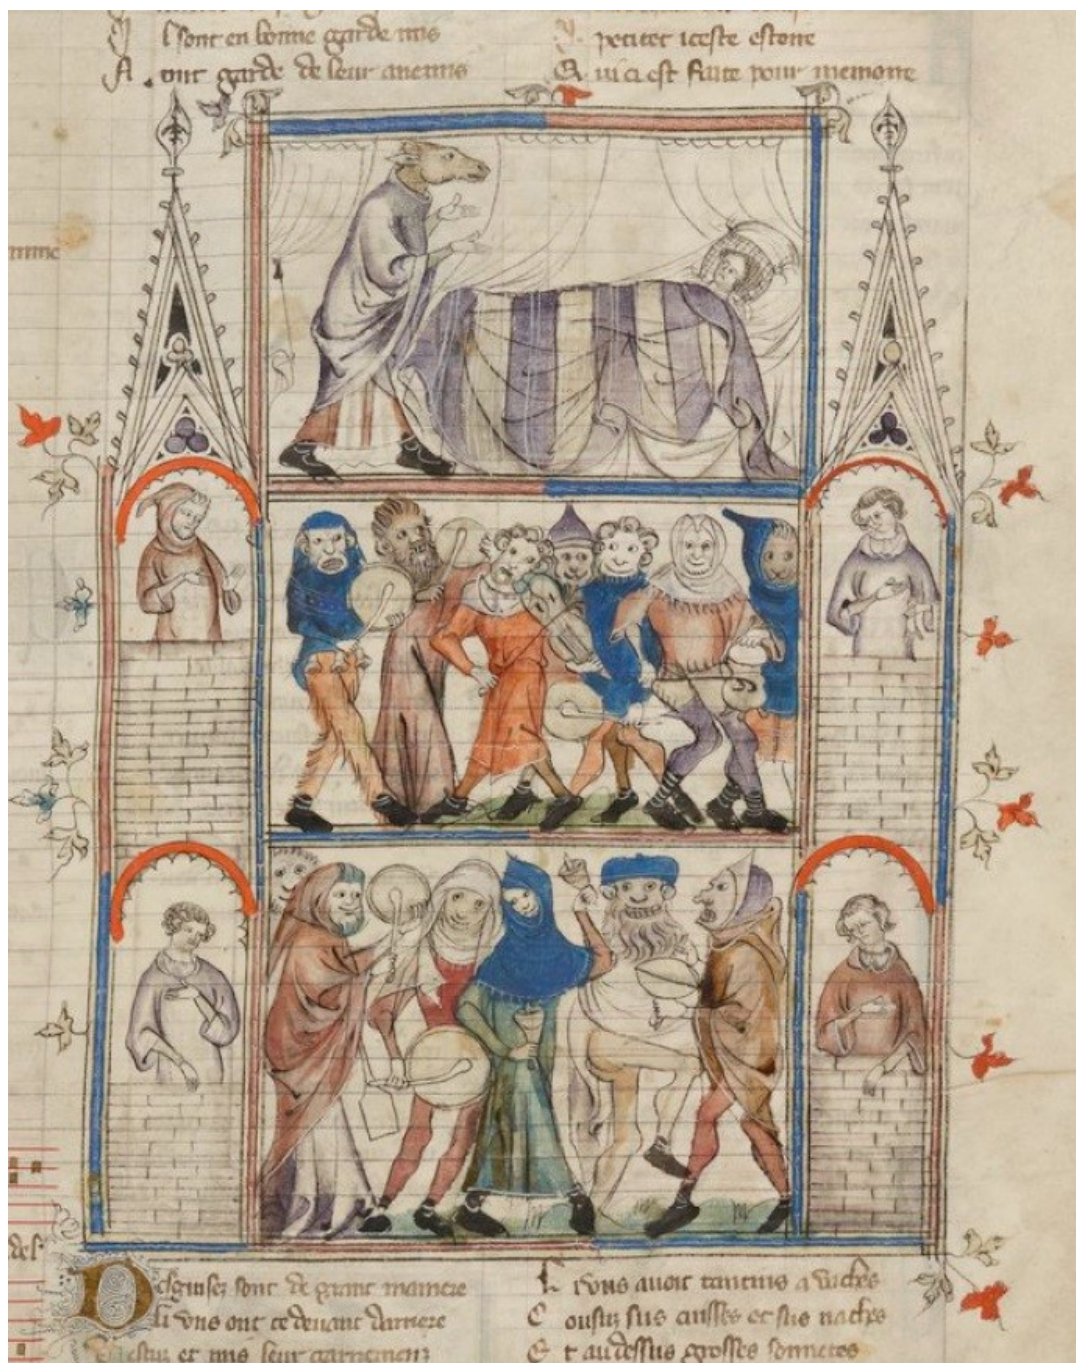 sont en bonne garde mis
ont garde de leur anemis
iceste estoire
Q ui ci est faite pour memoire
D esguisez sont de grant maniere
Li vns ont ce deuant darriere
et mis leur garnemenz
L i vns auoit tantins a vaches
C ousuz sus cuisses et sus naches
E t au dessus grosses sonnetes